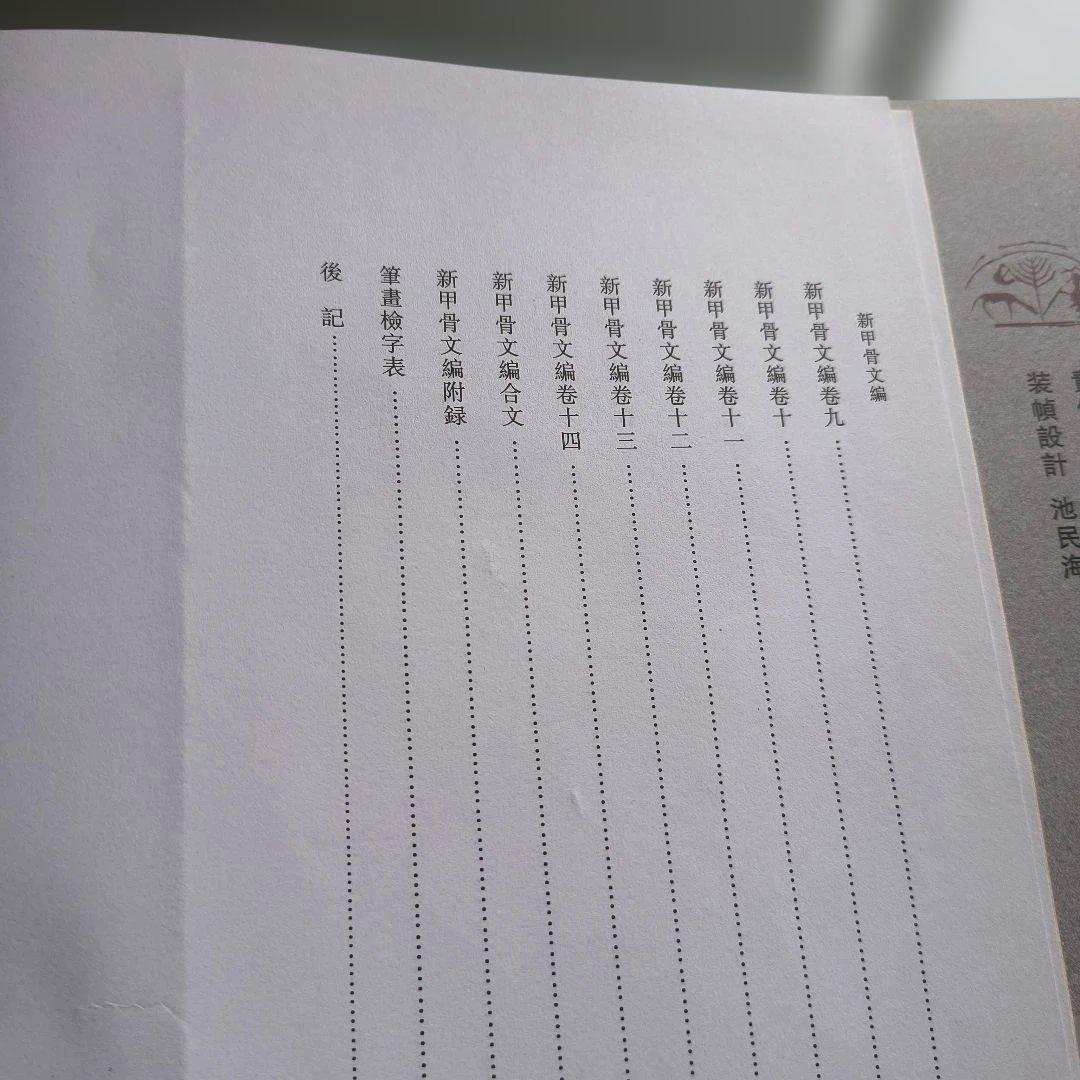 新甲骨文編
新甲骨文編卷九
新甲骨文編卷十
新甲骨文編卷十一
新甲骨文編卷十二
新甲骨文編卷十三
新甲骨文編卷十四
新甲骨文編合文
新甲骨文編附録
筆畫檢字表
後記
装幀設計 池民海